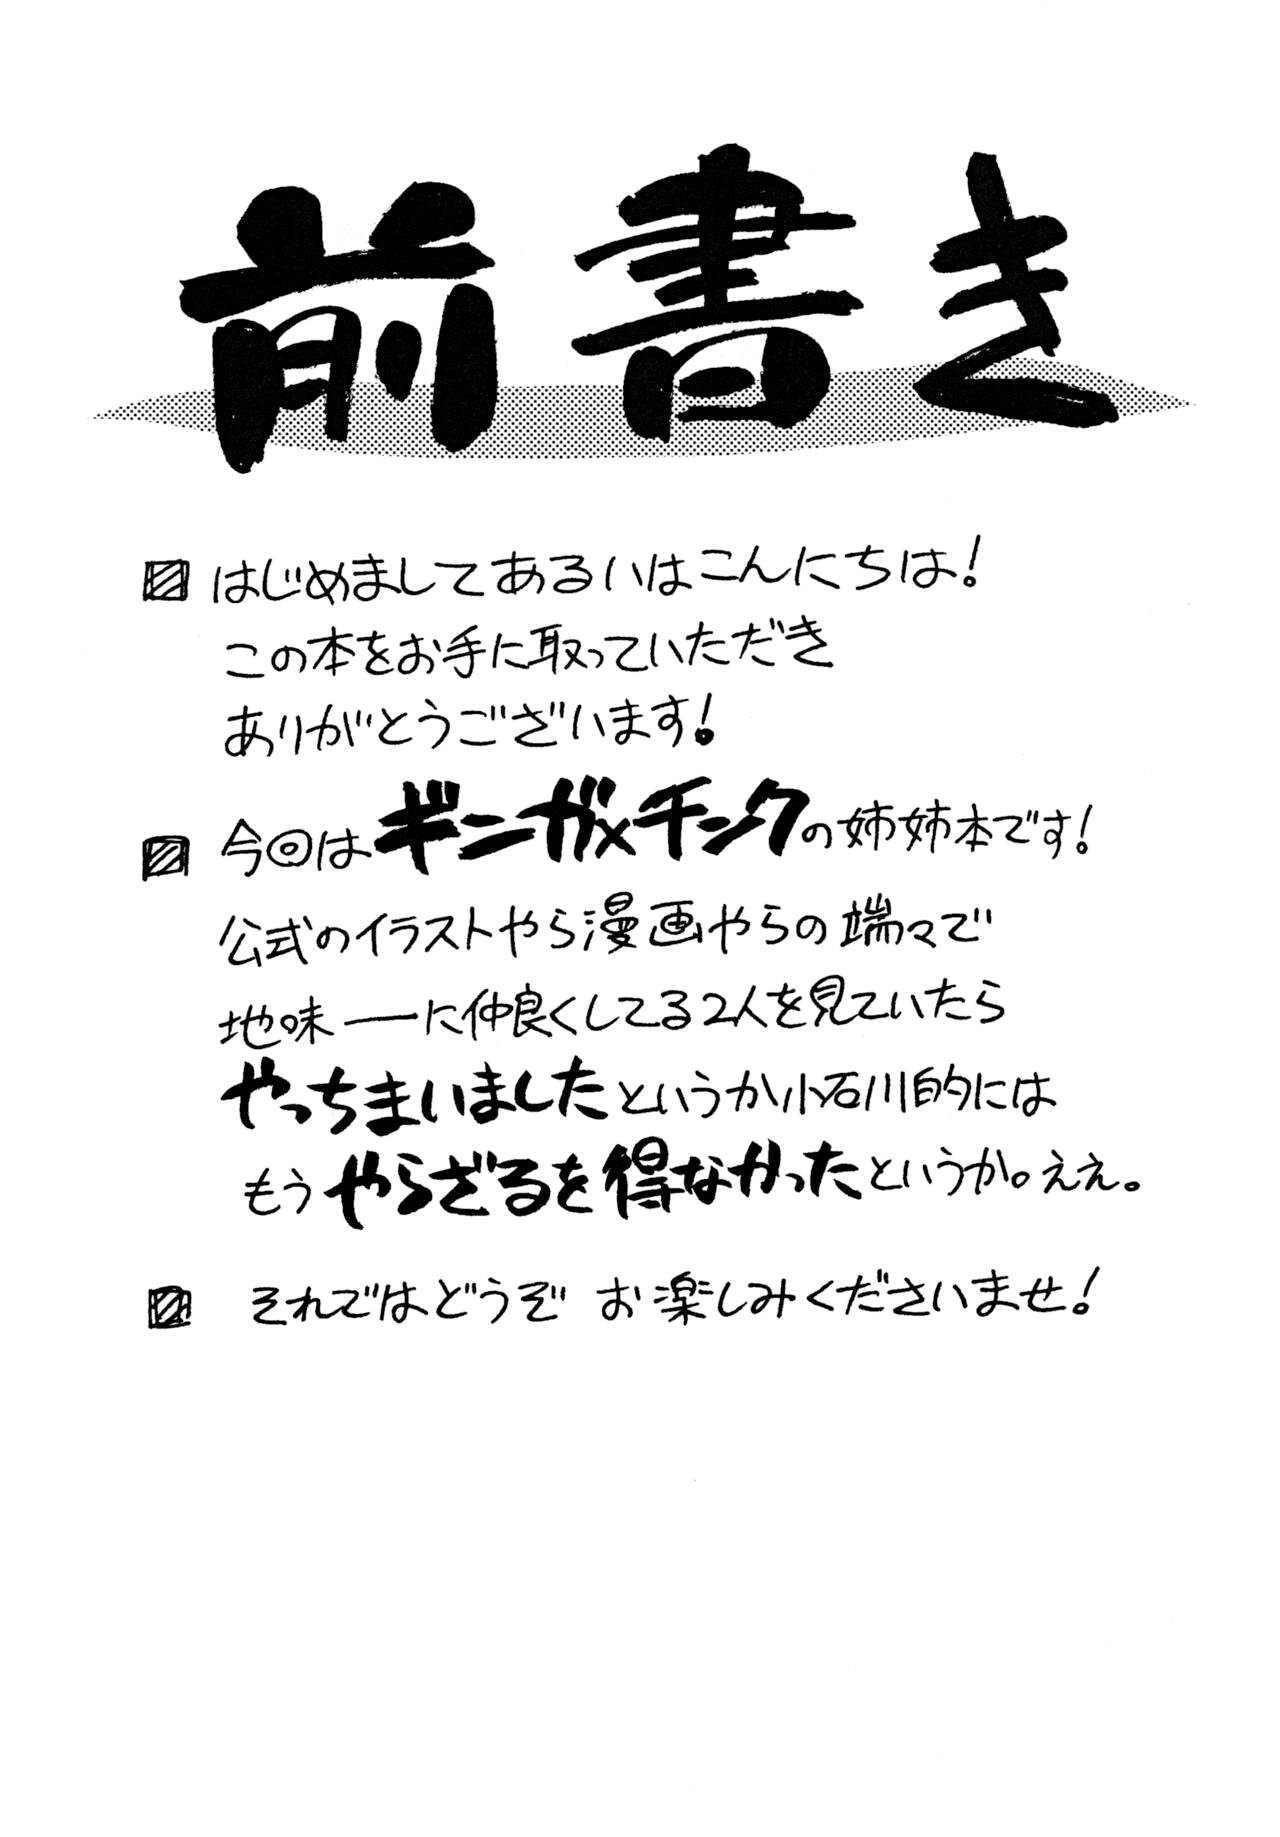 前書き
はじめましてあるいはこんにちは!
この本をお手に取っていただき
ありがとうございます!
今回はギンガ×チンクの姉姉本です!
公式のイラストやら漫画やらの端々で
地味ーーに仲良くしてる2人を見ていたら
やっちまいましたというか小石川的には
もうやらざるを得なかったというか。ええ。
それではどうぞ お楽しみくださいませ!